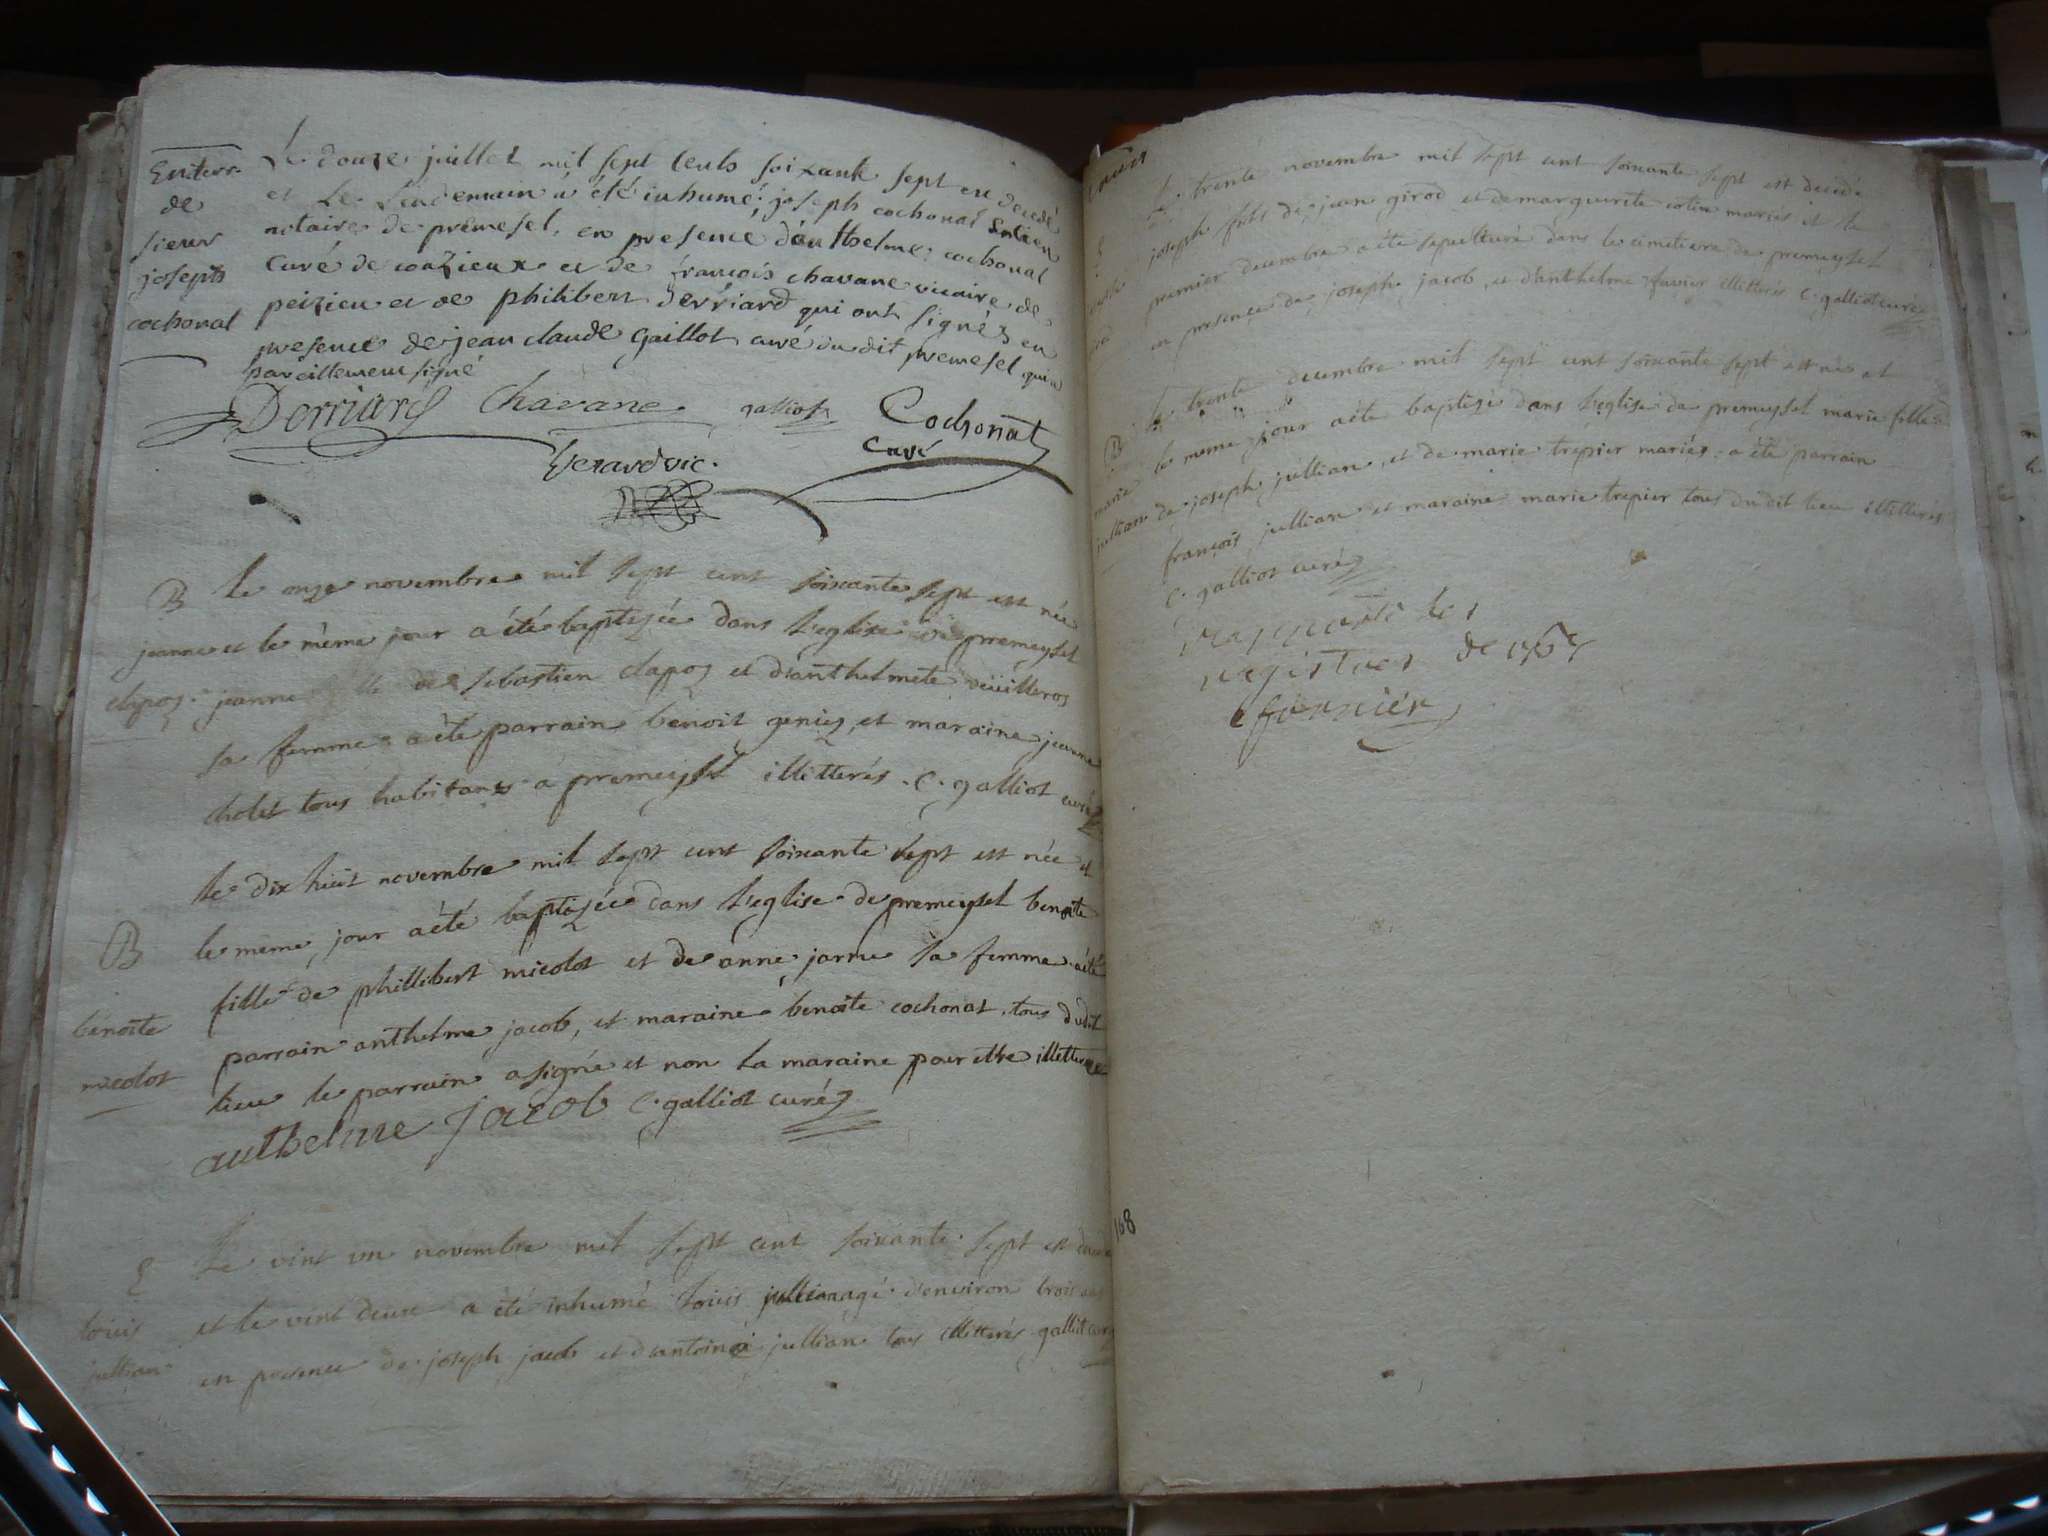 Enterr. de sieur joseph cochonat
Le douze juillet mil sept cents soixante sept en decedé
et Le Lendemain a été inhumé joseph cochonat
notaire de premesel, en presence danthelme cochonat
curé de conzieux et de françois chavane vicaire de
peizieu et de philibert Derriard qui ont signés en
presence de jean claude gaillot curé du dit premesel qui a
pareillement signé
Derriard Chavane galliot Cochonat
curé
B
jeanne
clapoz
le onze novembre mil sept cent soixante sept est née
et le même jour a été baptizée dans l'eglise de premeysel
jeanne fille de sebastien clapoz et d'anthelmete
sa femme a été parrain benoit geniez, et maraine jeanne
cholet tous habitans a premeysel illitterés. C. galliot curé
B
benoîte
micolot
le dix huit novembre mil sept cent soixante sept est née et
le meme jour a été baptizée dans l'eglise de premeysel benoîte
fille de phillibert micolot et de anne jarme sa femme a été
parrain anthelme jacob, et maraine benoîte cochonat, tous dudit
lieu le parrain a signé et non la maraine pour etre illetterée
anthelme jacob C. galliot curé
E
louis
jullian
Le vint un novembre mil sept cent soixante sept est decedé
et le vint deux a été inhumé louis jullian agé d'environ trois ans
en presence de joseph jacob et d'antoine jullian tous illitterés galliot curé
Le trente novembre mil sept cent soixante sept est decedé
joseph fils de jean girod et de marguerite colin mariés et le
premier decembre a été sepulturé dans le cimetiere de premeysel
en presence de joseph jacob, et d'anthelme illitterés C. galliot curé
B
marie
jullian
le trente decembre mil sept cent soixante sept est née et
le meme jour a été baptizé dans l'eglise de premeysel marie fille
de joseph jullian, et de marie trepier mariés. a été parrain
françois jullian et maraine marie trepier tous du dit lieu illitterés
C. galliot curé
registres de 1767
fournier
168